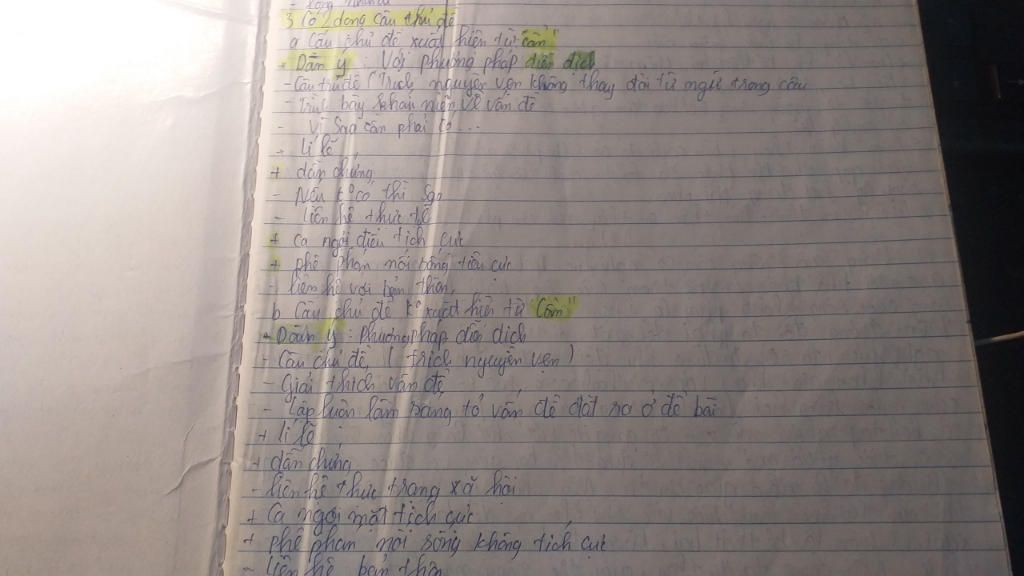 3 Có 2 dạng câu chủ đề
a Câu chủ đề xuất hiện từ "cần"
+ Dàn ý : Với phương pháp diễn dịch
- Câu chủ đề (Trích nguyên vẹn không thay đổi từ ngữ trong câu
- Trình bày khái niệm về vấn đề
- Vì sao cần phải có...
+ lí lẽ
+ dẫn chứng
- Nếu k° có thì sao
- liên hệ thực tế
+ ca ngợi điều tích cực
+ phê phán lối sống tiêu cực
- liên hệ với bản thân
b Câu chủ đề k° xuất hiện từ "Cần"
+ Dàn ý : phương pháp diễn dịch
- Câu chủ đề ( trích nguyên vẹn )
- Giải thích vấn đề
- Lập luận làm sáng tỏ vấn đề đặt ra ở đề bài
+ lí lẽ
+ dẫn chứng
- liên hệ thực trạng xã hội
+ Ca ngợi mặt tích cực
+ phê phán lối sống không tích cực
- liên hệ bản thân